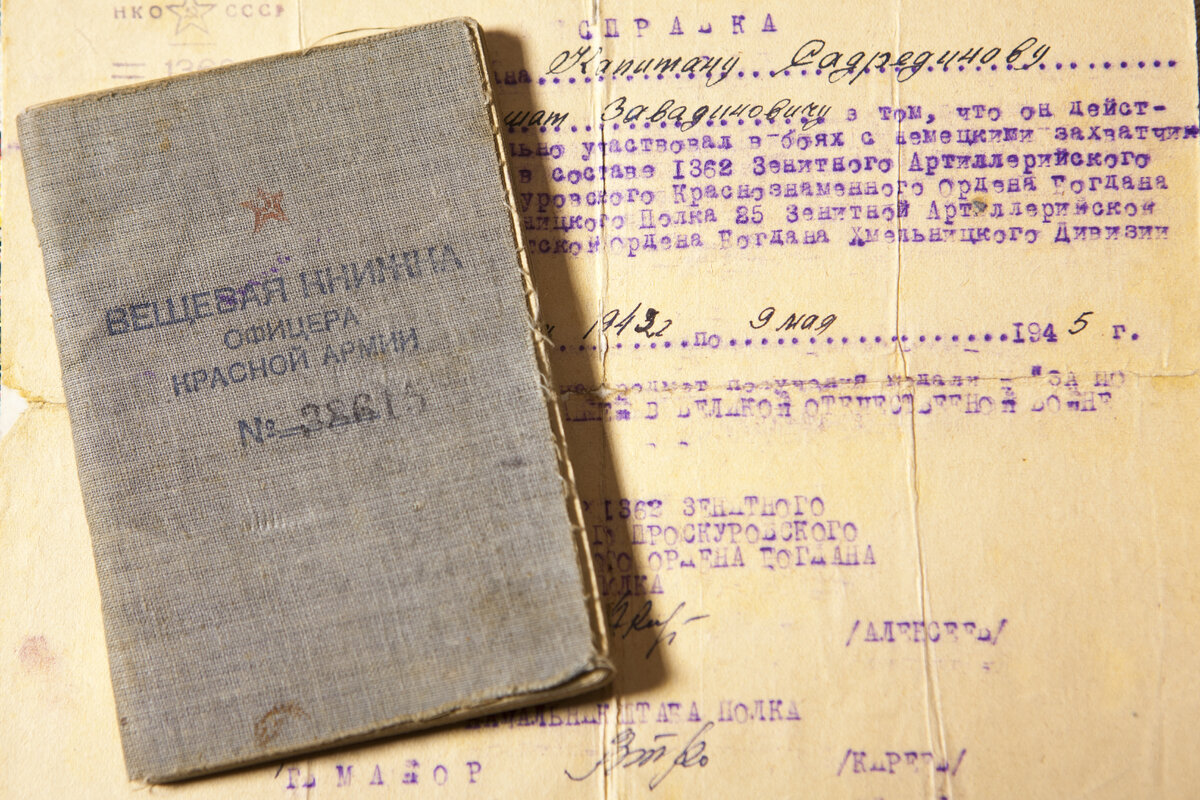 НКО СССР
СПРАВКА
Капитану Садрединову
Завадиновичу в том, что он дейст-
участвовал в боях с немецкими захватчик
в составе 1362 Зенитного Артиллерийского
уровского Краснознаменного Ордена Богдана
ницкого Полка 25 Зенитной Артиллерийской
тской ордена Богдана Хмельницкого Дивизии
по 9 мая 1945 г.
предмет получения медали - "ЗА ПО
В ВЕЛИКОЙ ОТЕЧЕСТВЕННОЙ ВОЙНЕ
1362 ЗЕНИТНОГО
ПРОСКУРОВСКОГО
ОГО ОРДЕНА БОГДАНА
ПОЛКА
/АЛЕКСЕЕВ/
НАЧАЛЬНИК ШТАБА ПОЛКА
МАЙОР /КАРЕВ/
ВЕЩЕВАЯ КНИЖКА
ОФИЦЕРА
КРАСНОЙ АРМИИ
№